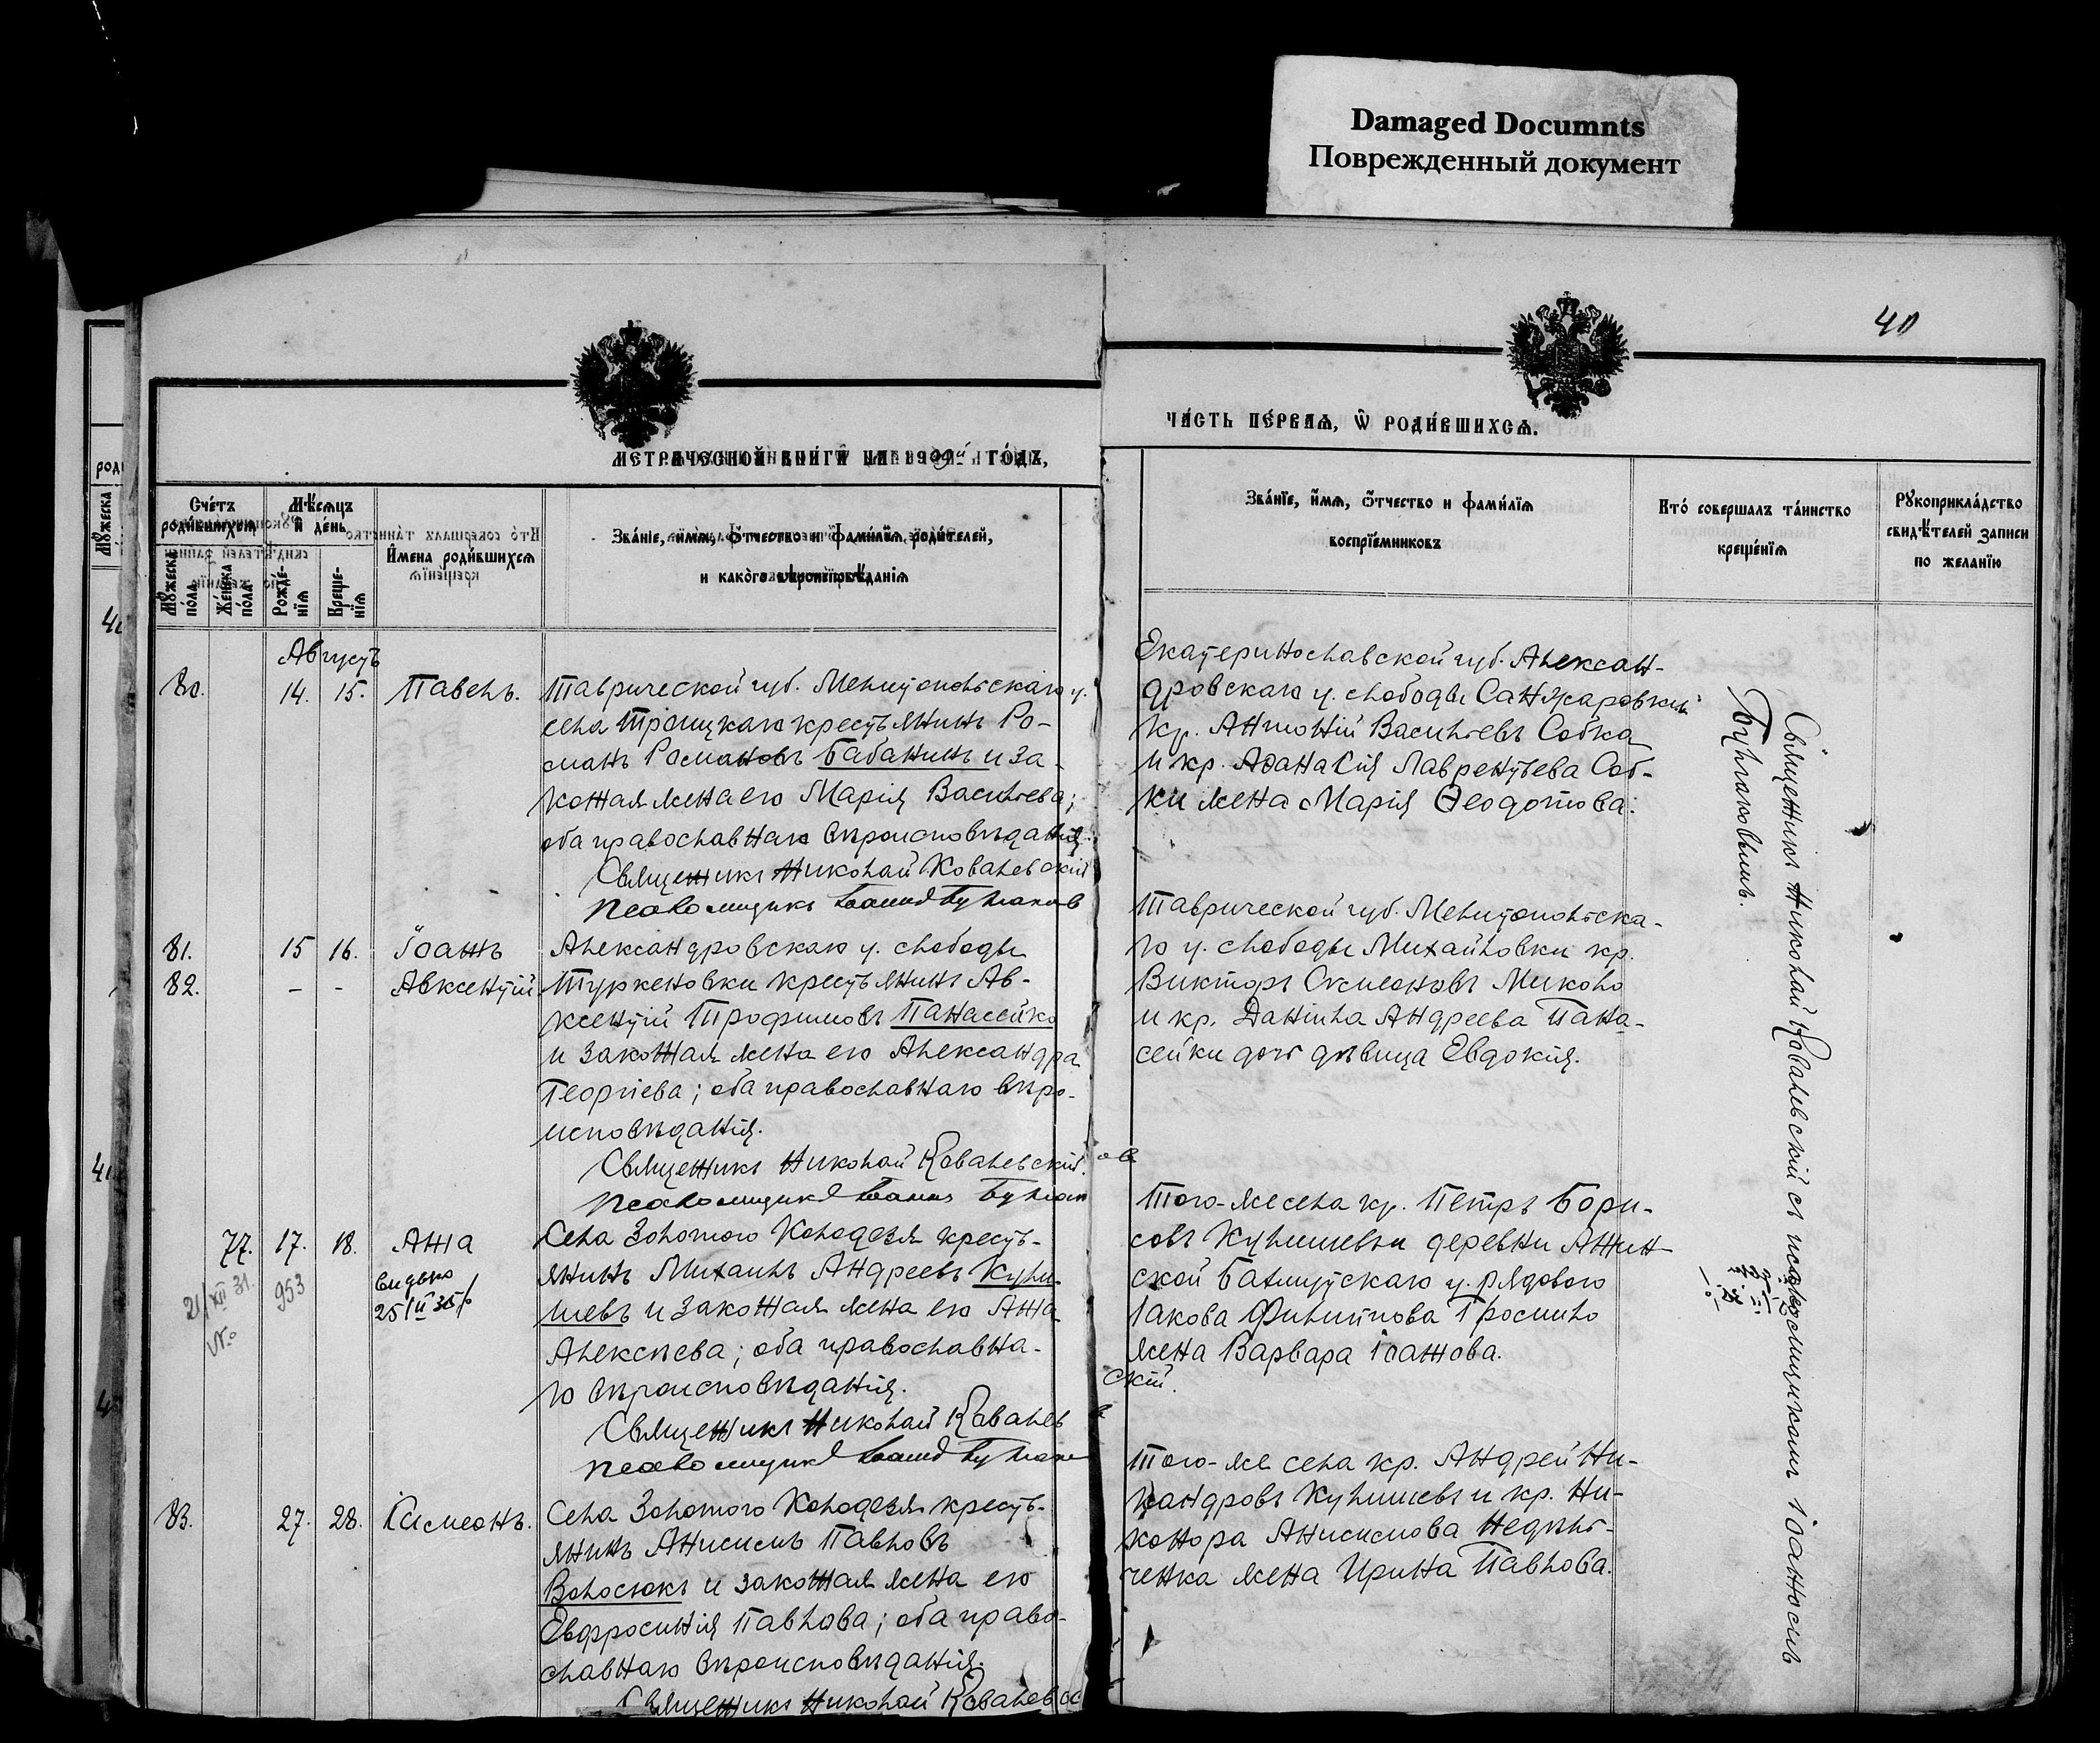 Damaged Documnts
Поврежденный документ
40
МЕТРИЧЕСКОЙ КНИГИ НА 1909й ГОДЪ,
ЧАСТЬ ПЕРВАЯ, Ѿ РОДИВШИХСЯ.
Счетъ родившихся
Мужеска пола
Женска пола
Мѣсяцъ и день
Рожденія
Крещенія
Имена родившихся
Званіе, имя, отчество и фамилія родителей,
и какого вѣроисповѣданія
Званіе, имя, отчество и фамилія
воспріемниковъ
Кто совершалъ таинство
крещенія
Рукоприкладство
свидѣтелей записи
по желанію
Августъ
80. 14. 15. Павелъ.
Таврической губ. Мелитопольскаго у.
села Троицкаго крестьянинъ Ро-
манъ Романовъ Бабанинъ и за-
конная жена его Марія Васильева;
оба православнаго вѣроисповѣданія.
Священникъ Николай Ковалевскій
Псаломщикъ
Екатеринославской губ. Алексан-
дровскаго у. слободы Санжаровки
кр. Антоній Васильевъ Собка
и кр. Аѳанасія Лаврентьева Соб-
ки жена Марія Ѳеодотова.
81. 15 16. Іоаннъ
82. - - Авксентій
Александровскаго у. слободы
Туркеновки крестьянинъ Ав-
ксентій Трофимовъ Панасейко
и законная жена его Александра
Георгіева; оба православнаго вѣро-
исповѣданія.
Священникъ Николай Ковалевскій.
Псаломщикъ
Таврической губ. Мелитопольска-
го у. слободы Михайловки кр.
Викторъ Симеоновъ Миколо
и кр. Даніила Андреева Пана-
сейки дочь дѣвица Евдокія.
77. 17. 18. Анна
21/XII 31.
953
видано
25/II 35
Села Золотого Колодезя кресть-
янинъ Михаилъ Андреевъ Кули-
шевъ и законная жена его Анна
Алексѣева; оба православна-
го вѣроисповѣданія.
Священникъ Николай Ковалевскій.
Псаломщикъ
Того-же села кр. Петръ Бори-
совъ Кулишевъ и деревни Аннин-
ской Бахмутскаго у. рядового
Іакова Филиппова
жена Варвара Іоаннова.
83. 27. 28. Симеонъ.
Села Золотого Колодезя кресть-
янинъ Анисимъ Павловъ
Волосюкъ и законная жена его
Евфросинія Павлова; оба право-
славнаго вѣроисповѣданія.
Священникъ Николай Ковалевск
Того-же села кр. Андрей Ни-
кандровъ Кулишевъ и кр. Ни-
конора Анисимова Недѣль-
ченка жена Ирина Павлова.
Священникъ Николай Ковалевскій съ псаломщикомъ Іоанномъ